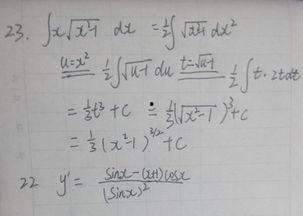 23. ∫x√(x²-1) dx = ½∫√(x²-1) dx²
u=x² ½∫√(u-1) du t=√(u-1) ½∫t·2tdt
= ⅓t³ + C = ⅓(√(x²-1))³ + C
= ⅓(x²-1)^(3/2) + C
22 y' = (sinx-(x+1)cosx)/(sinx)²